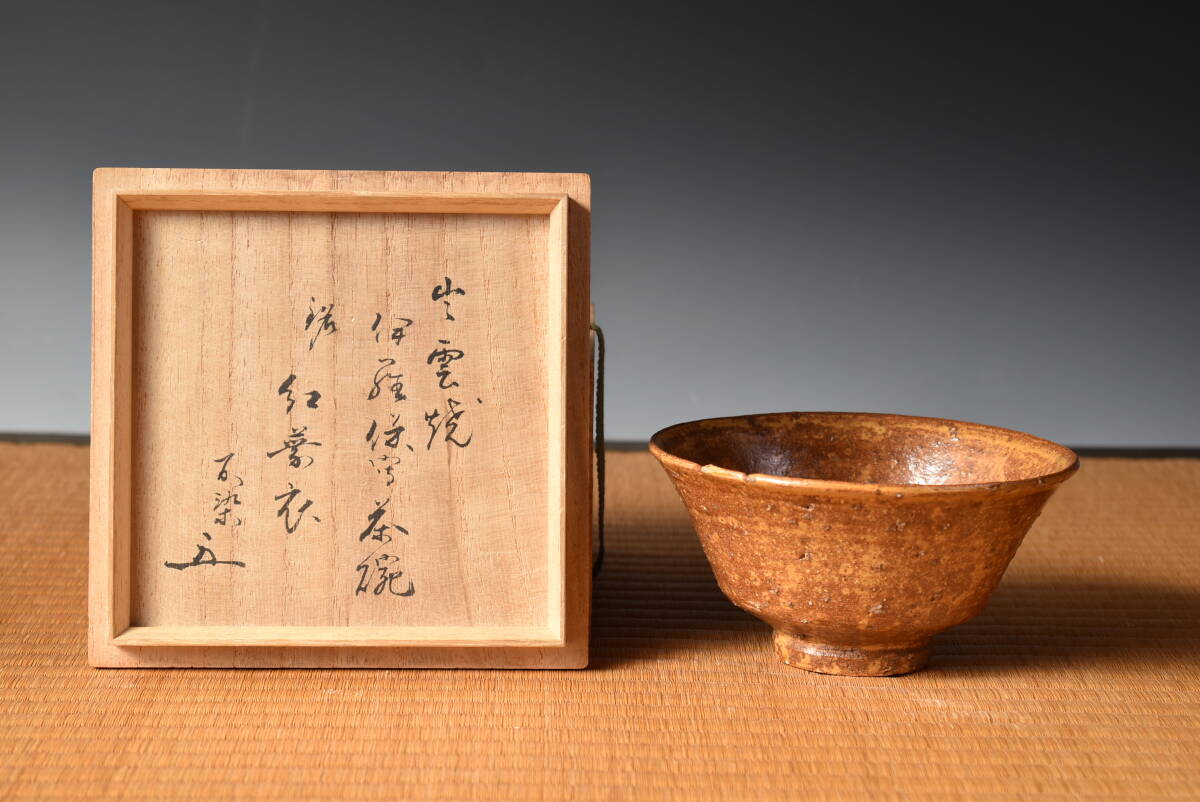 出雲焼
伊羅保写茶碗
銘
紅葉衣
不染